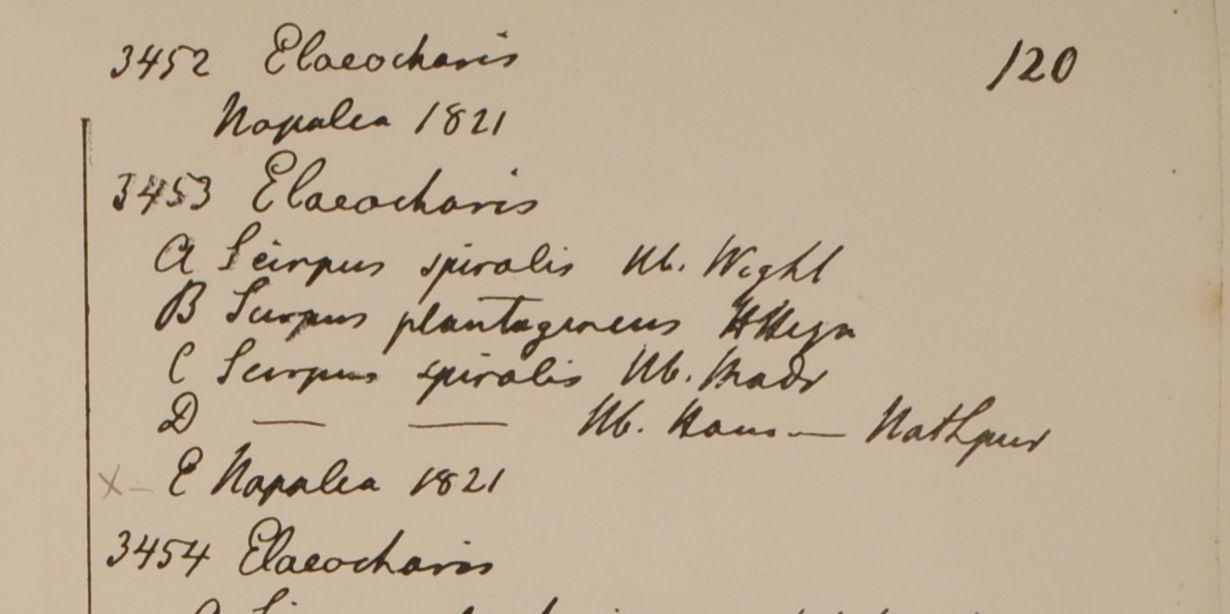 120
3452 Elaeocharis
Napalea 1821
3453 Elaeocharis
A Scirpus spiralis Hb. Wight
B Scirpus plantagineus HHeyn
C Scirpus spiralis Hb. Madr
D — — Hb. Ham — Nathpur
X – E Napalea 1821
3454 Elaeocharis